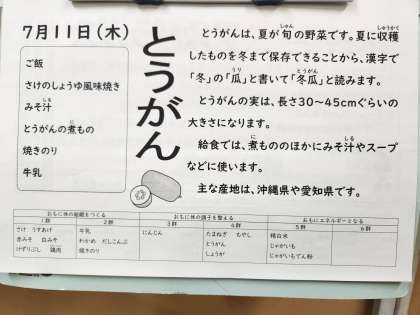 7月11日(木)
ご飯
さけのしょうゆ風味焼き
みそ汁
とうがんの煮もの
焼きのり
牛乳
とうがん
とうがんは、夏が旬の野菜です。夏に収穫
したものを冬まで保存できることから、漢字で
「冬」の「瓜」と書いて「冬瓜」と読みます。
とうがんの実は、長さ30〜45cmぐらいの
大きさになります。
給食では、煮もののほかにみそ汁やスープ
などに使います。
主な産地は、沖縄県や愛知県です。
おもに体の組織をつくる おもに体の調子を整える おもにエネルギーとなる
1群 2群 3群 4群 5群 6群
さけ うすあげ 牛乳 にんじん たまねぎ もやし 精白米
赤みそ 白みそ わかめ だしこんぶ とうがん じゃがいも
けずりぶし 鶏肉 焼きのり しょうが じゃがいもでん粉